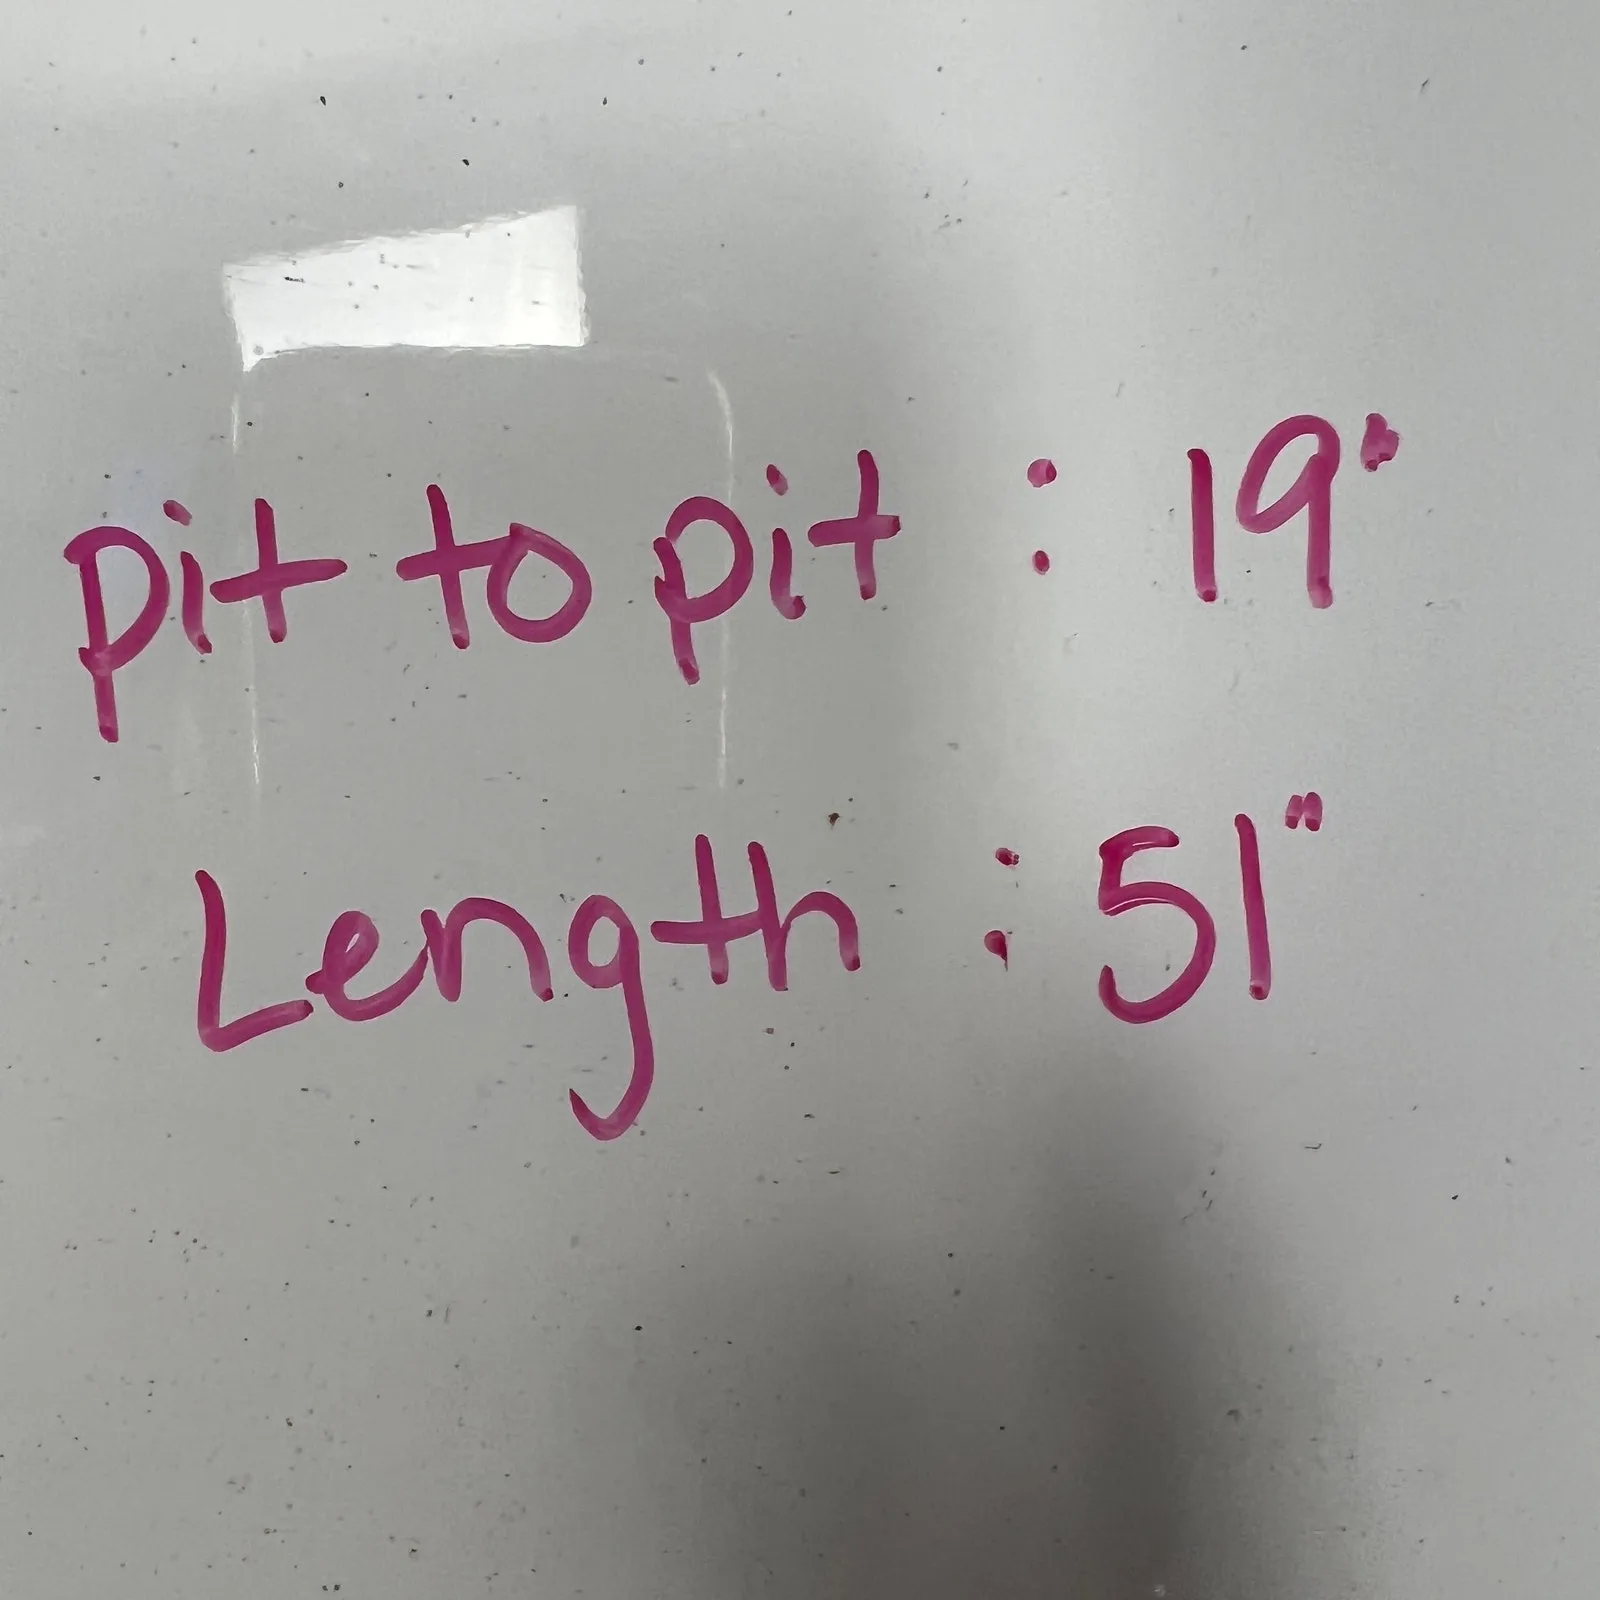 pit to pit : 19"
Length : 51"